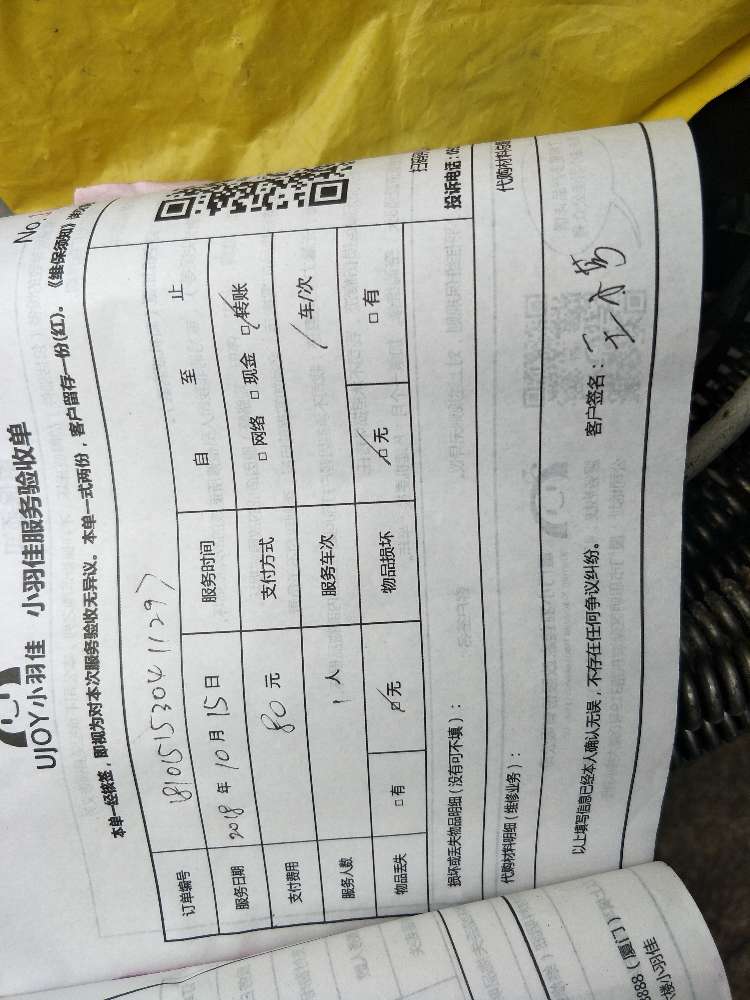 No
UJOY小羽佳 小羽佳服务验收单
本单一经核签，即视为对本次服务验收无异议。本单一式两份，客户留存一份(红)。《维保须知》
订单编号 1810151530411297
服务日期 2018 年 10 月 15 日 服务时间 自 至 止
支付费用 80 元 支付方式 □网络 □现金 □转账
服务人数 1 人 服务车次 / 车/次
物品丢失 □有 □无 物品损坏 □无 □有
损坏或丢失物品明细（没有可不填）：
投诉电话：05
代购材料明细（维修业务）：
代购材料总额
以上填写信息已经本人确认无误，不存在任何争议纠纷。 客户签名：
888（厦门）
楼小羽佳